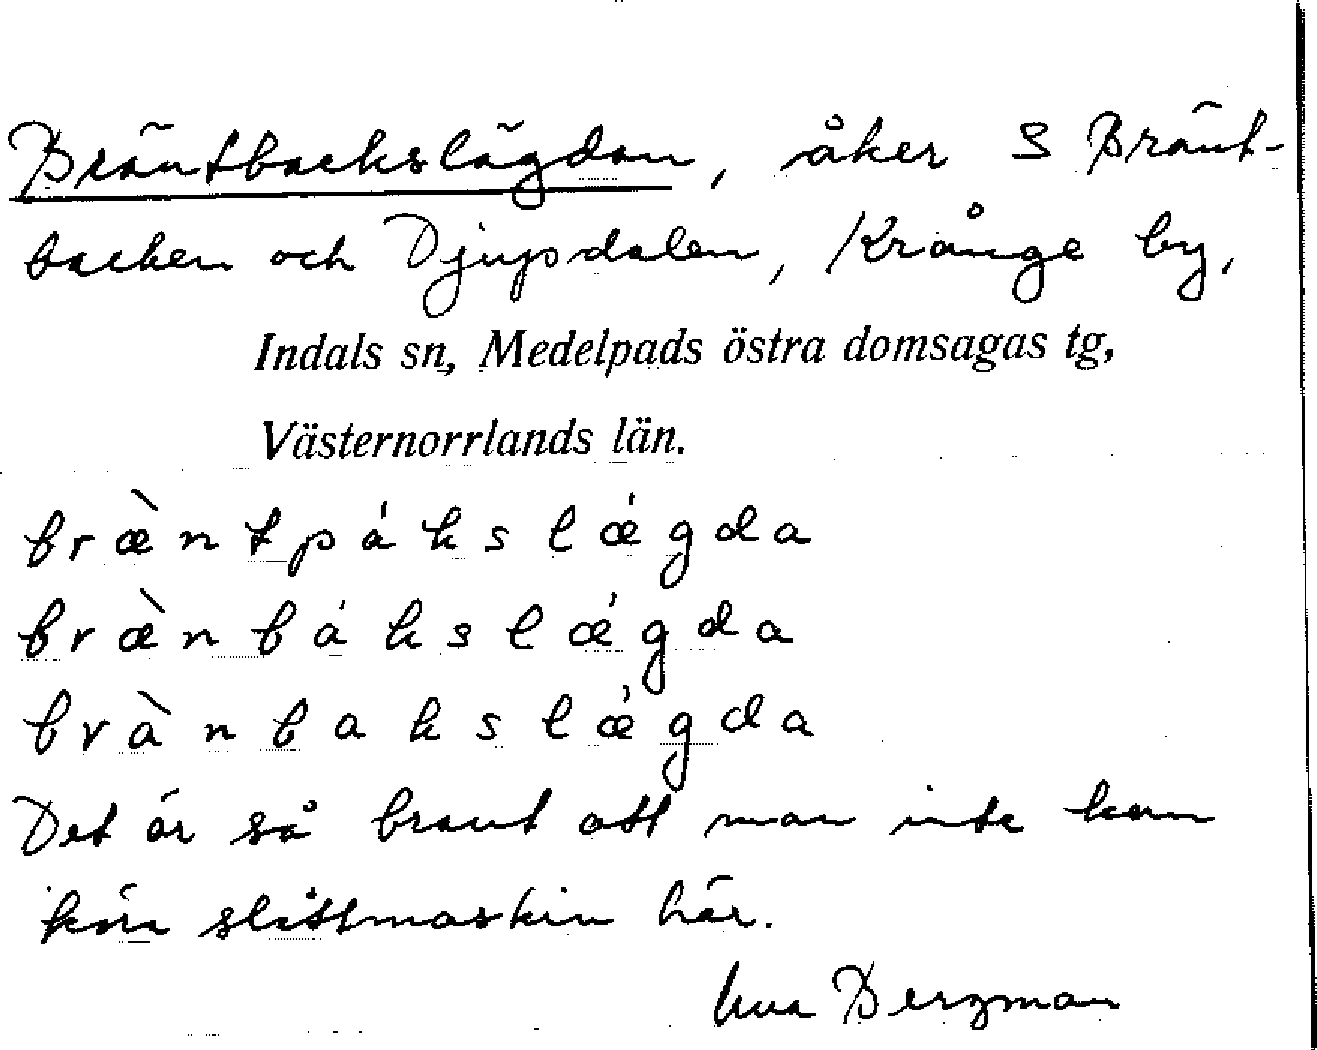 Bräntbackslägdan, åker S Bränt-
backen och Djupsdalen, Krånge by,
Indals sn, Medelpads östra domsagas tg,
Västernorrlands län.
bræ̀ntpákslǽgda
bræ̀nbákslǽgda
brànbakslǽgda
Det är så brant att man inte kan
köra slåttmaskin här.
Bergman